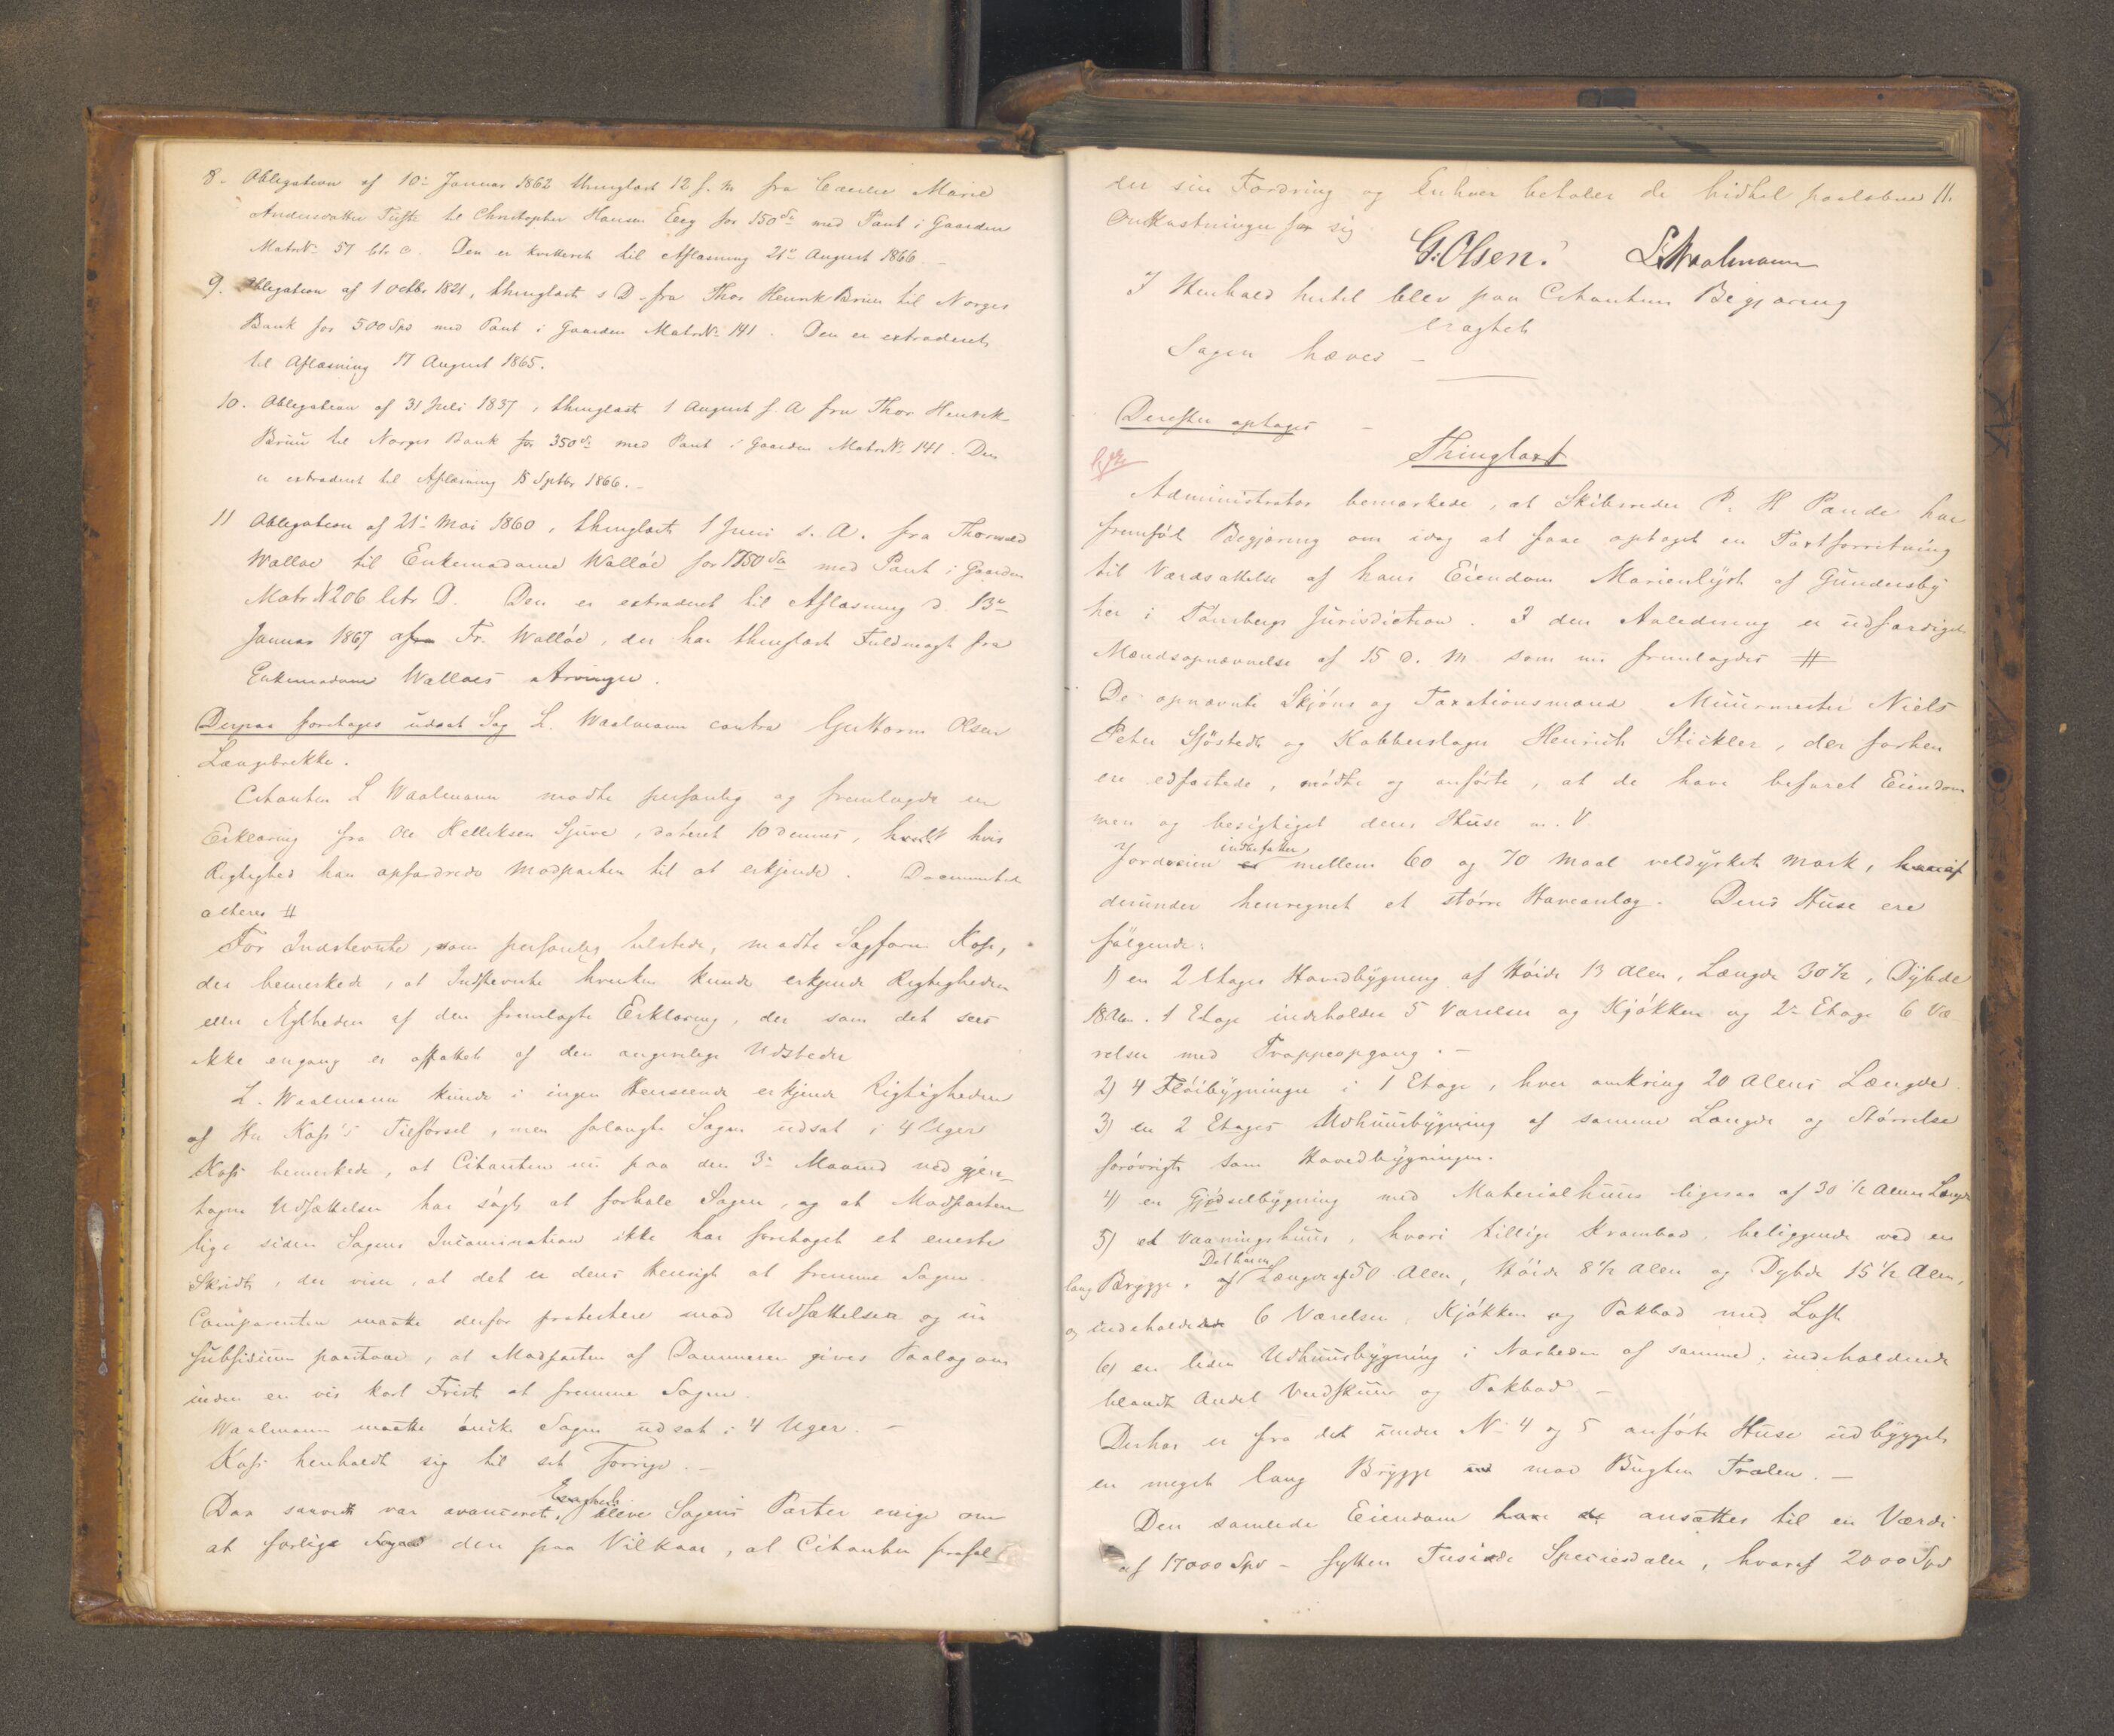 8. Obligation af 10de Januar 1862 thinglæst 12 s. M fra Marie
Andersdatter til Christopher Hansen Eeg for 150 Sp med Pant i Gaarden
MatrN. 57 ltr c. Den er kvitteret til Aflæsning 21de August 1866.
9. Obligation af 1 Octbr 1821, thinglæst s D. fra Thor Henrik Bruu til Norges
Bank for 500 Spd med Pant i Gaarden MatrN. 141. Den er extraderet
til Aflæsning 17 August 1865.
10. Obligation af 31 Juli 1837, thinglæst 1 August s. A fra Thor Henrik
Bruu til Norges Bank for 350 Sp med Pant i Gaarden MatrN. 141. Den
er extraderet til Aflæsning 18 Septbr 1866.
11 Obligation af 21de Mai 1860, thinglæst 1 Juni s. A. fra Thorwald
Walløe til Enkemadame Walløe for 1750 Spd med Pant i Gaarden
Matr N 206 litr D. Den er extraderet til Aflæsning d. 13de
Januar 1867 af Fr. Walløe, der har thinglæst Fuldmagt fra
Enkemadame Walløes Arvinger.
Derpaa foretages udsat Sag L. Waalmann contra Guttorm Olsen
Langebrekke.
Citanten L Waalmann mødte personlig og fremlagde en
Erklæring fra Ole Kelleksen Sjuve, dateret 10 dennes, hvis
Rigtighed han opfordrede Modparten til at erkjende. Documentet
alteres #
For Indstevnte, som personlig tilstede, mødte Sagfører Koss,
der bemerkede, at Indstevnte hverken kunde erkjende Rigtigheden
eller Ægtheden af den fremlagte Erklæring, der som det sees
ikke engang er affattet af den angivelige Udsteder
L. Waalmann kunde i ingen Henseende erkjende Rigtigheden
af Hr Koss's Tilførsel, men forlangte Sagen udsat i 4 Uger
Koss bemerkede, at Citanten nu paa den 3de Maaned ved gjen-
tagne Udsættelser har søgt at forhale Sagen, og at Modparten
lige siden Sagens Incamination ikke har foretaget et eneste
Skridt, der viser, at det er dens Hensigt at fremme Sagen.
Comparenten maatte derfor protestere mod Udsættelsen og in
subsidium paastaae, at Modparten af Dommeren gives Paalæg om
inden en vis kort Frist at fremme Sagen.
Waalmann maatte ønske Sagen udsat i 4 Uger. -
Koss henholdt sig til sit Forrige. -
Da saavidt var avanceret, bleve Sagens Parter enige om
at forlige den paa Vilkaar, at Citanten frafal
der sin Fordring og Enhver betaler de hidtil paaløbne 11.
Omkostninger for sig
G. Olsen. L. Waalmann
I Henhold hertil blev paa Citantens Begjæring
eragtet
Sagen hæves -
Derefter optoges -
Thinglæst
Administrator bemærkede, at Skibsreder P. H Pande har
fremsat Begjæring om idag at faae optaget en Taxtforretning
til Værdsættelse af hans Eiendom Marienlyst af Gundersby
her i Tønsbergs Jurisdiction. I den Anledning er udfærdiget
Mændsopnævnelse af 15 d. M som nu fremlagdes #
De opnævnte Skjøns og Taxationsmænd Muurmester Niels
Peter Sjøstedt og Kobberslager Henrich Stickler, der forhen
ere edfæstede, mødte og anførte, at de have befaret Eiendom
men og besigtiget dens Huse m. V
indbefatter
Jordveien mellem 60 og 70 Maal veldyrket Mark,
derunder henregnet et større Haveanlæg. Dens Huse ere
følgende:
1) en 2 Etages Hovedbygning af Høide 13 Alen, Længde 30 1/2, Dybde
18 Alen. 1 Etage indeholder 5 Værelser og Kjøkken og 2den Etage 6 Væ
relser med Trappeopgang. -
2) 4 Fløibygninger i 1 Etage, hver omkring 20 Alens Længde.
3) en 2 Etages Udhuusbygning af samme Længde og Størrelse
forøvrigt som Hovedbygningen.
4) en Gjødselbygning med Materialhuus ligesaa af 30 1/2 Alens Længde
5) et Vaaningshuus, hvori tillige Krambod, beliggende ved en
Det har en
lang Brygge. Længde af 50 Alen, Høide 8 1/2 Alen og Dybde 15 1/2 Alen,
og indeholder 6 Værelser, Kjøkken og Pakbod med Loft
6) en liden Udhuusbygning i Nærheden af samme, indeholdende
blandt Andet Vedskuur og Pakbod -
Derhos er fra det under No 4 og 5 anførte Huse udbygget
en meget lang Brygge mod Bugten Trælen. -
Den samlede Eiendom ansættes til en Værdi
af 17000 Spd - sytten Tusinde Speciesdaler, hvoraf 2000 Spd